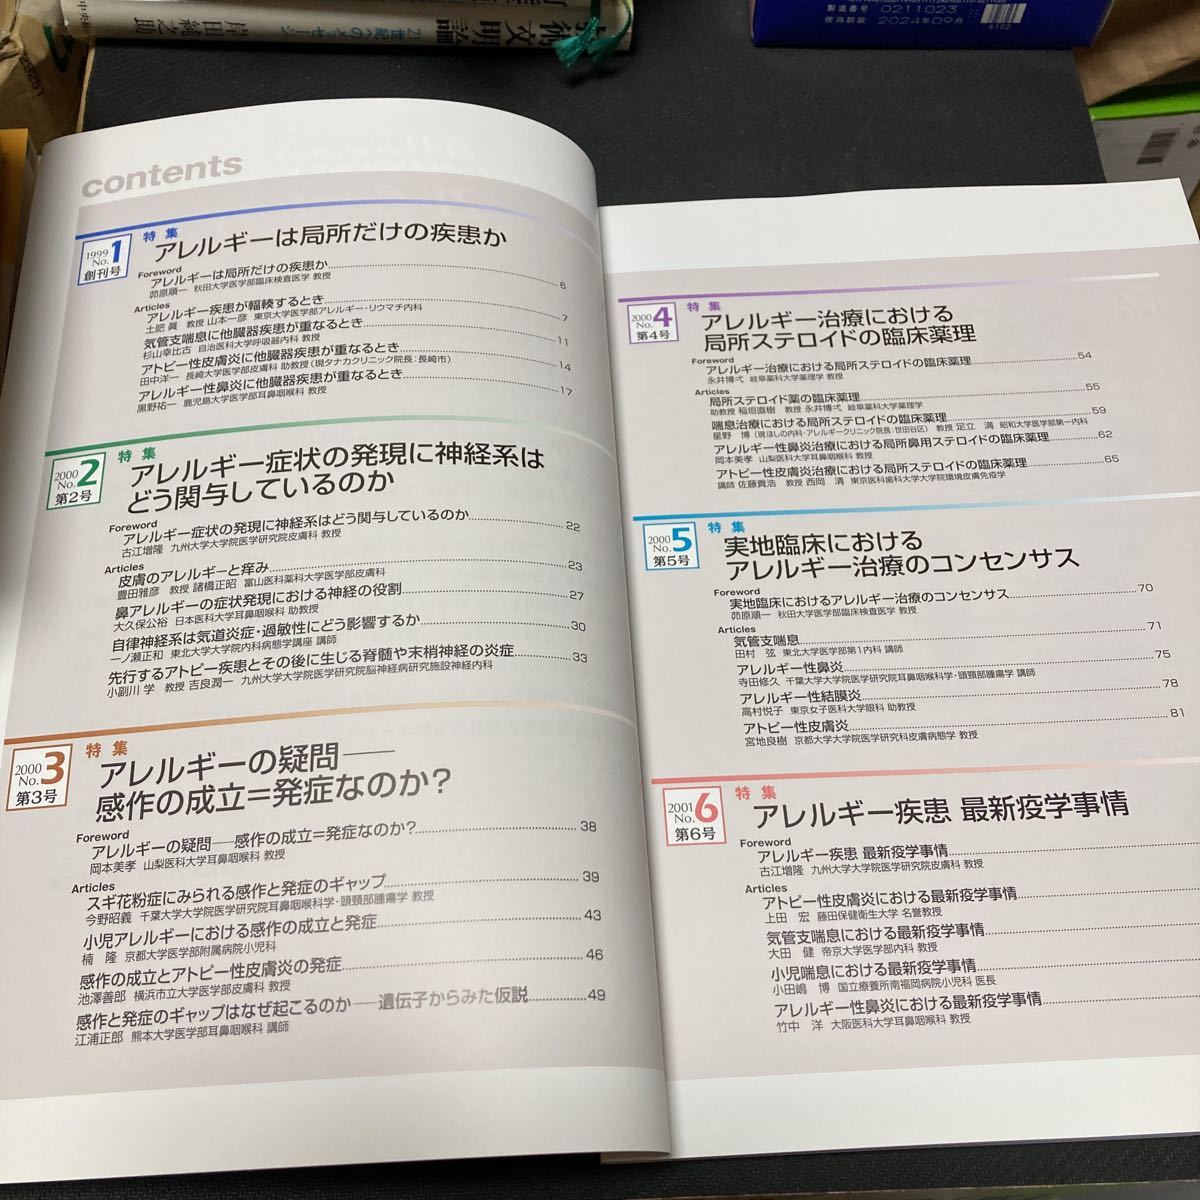 技術文明論
21世紀へのメッセージ
岸田純之助
製造番号 0211023
使用期限 2024年09月
6102
contents
1999
No.1
創刊号
特集
アレルギーは局所だけの疾患か
Foreword
アレルギーは局所だけの疾患か 6
茆原順一 秋田大学医学部臨床検査医学 教授
Articles
アレルギー疾患が輻輳するとき 7
土肥 眞 教授 山本一彦 東京大学医学部アレルギー・リウマチ内科
気管支喘息に他臓器疾患が重なるとき 11
杉山幸比古 自治医科大学呼吸器内科 教授
アトピー性皮膚炎に他臓器疾患が重なるとき 14
田中洋一 長崎大学医学部皮膚科 助教授(現タナカクリニック院長:長崎市)
アレルギー性鼻炎に他臓器疾患が重なるとき 17
黒野祐一 鹿児島大学医学部耳鼻咽喉科 教授
2000
No.2
第2号
特集
アレルギー症状の発現に神経系は
どう関与しているのか
Foreword
アレルギー症状の発現に神経系はどう関与しているのか 22
古江増隆 九州大学大学院医学研究院皮膚科 教授
Articles
皮膚のアレルギーと痒み 23
豊田雅彦 教授 諸橋正昭 富山医科薬科大学医学部皮膚科
鼻アレルギーの症状発現における神経の役割 27
大久保公裕 日本医科大学耳鼻咽喉科 助教授
自律神経系は気道炎症・過敏性にどう影響するか 30
一ノ瀬正和 東北大学大学院内科病態学講座 講師
先行するアトピー疾患とその後に生じる脊髄や末梢神経の炎症 33
小副川 学 教授 吉良潤一 九州大学大学院医学研究院脳神経病研究施設神経内科
2000
No.3
第3号
特集
アレルギーの疑問──
感作の成立=発症なのか?
Foreword
アレルギーの疑問──感作の成立=発症なのか? 38
岡本美孝 山梨医科大学耳鼻咽喉科 教授
Articles
スギ花粉症にみられる感作と発症のギャップ 39
今野昭義 千葉大学大学院医学研究院耳鼻咽喉科学・頭頸部腫瘍学 教授
小児アレルギーにおける感作の成立と発症 43
楠 隆 京都大学医学部附属病院小児科
感作の成立とアトピー性皮膚炎の発症 46
池澤善郎 横浜市立大学医学部皮膚科 教授
感作と発症のギャップはなぜ起こるのか──遺伝子からみた仮説 49
江浦正郎 熊本大学医学部耳鼻咽喉科 講師
2000
No.4
第4号
特集
アレルギー治療における
局所ステロイドの臨床薬理
Foreword
アレルギー治療における局所ステロイドの臨床薬理 54
永井博弌 岐阜薬科大学薬理学 教授
Articles
局所ステロイド薬の臨床薬理 55
助教授 稲垣直樹 教授 永井博弌 岐阜薬科大学薬理学
喘息治療における局所ステロイドの臨床薬理 59
星野 博(現ほしの内科・アレルギークリニック院長:世田谷区) 教授 足立 満 昭和大学医学部第一内科
アレルギー性鼻炎治療における局所鼻用ステロイドの臨床薬理 62
岡本美孝 山梨医科大学耳鼻咽喉科 教授
アトピー性皮膚炎治療における局所ステロイドの臨床薬理 65
講師 佐藤貴浩 教授 西岡 清 東京医科歯科大学大学院環境皮膚免疫学
2000
No.5
第5号
特集
実地臨床における
アレルギー治療のコンセンサス
Foreword
実地臨床におけるアレルギー治療のコンセンサス 70
茆原順一 秋田大学医学部臨床検査医学 教授
Articles
気管支喘息 71
田村 弦 東北大学医学部第1内科 講師
アレルギー性鼻炎 75
寺田修久 千葉大学大学院医学研究院耳鼻咽喉科学・頭頸部腫瘍学 講師
アレルギー性結膜炎 78
高村悦子 東京女子医科大学眼科 助教授
アトピー性皮膚炎 81
宮地良樹 京都大学大学院医学研究科皮膚病態学 教授
2001
No.6
第6号
特集
アレルギー疾患 最新疫学事情
Foreword
アレルギー疾患 最新疫学事情
古江増隆 九州大学大学院医学研究院皮膚科 教授
Articles
アトピー性皮膚炎における最新疫学事情
上田 宏 藤田保健衛生大学 名誉教授
気管支喘息における最新疫学事情
大田 健 帝京大学医学部内科 教授
小児喘息における最新疫学事情
小田嶋 博 国立療養所南福岡病院小児科 医長
アレルギー性鼻炎における最新疫学事情
竹中 洋 大阪医科大学耳鼻咽喉科 教授